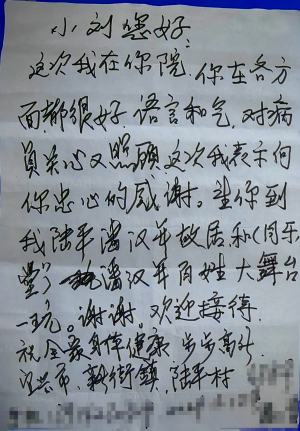 小刘您好:
这次我在你院.你在各方
面都很好.语言和气.对病
员关心又照顾这次我表示向
你忠心的感谢。望你到
我陆平潘汉年故居和(同乐
堂)潘汉年百姓大舞台
一玩。谢谢。欢迎接待.
祝全家身体健康 步步高升
宜兴市.新街镇.陆平村